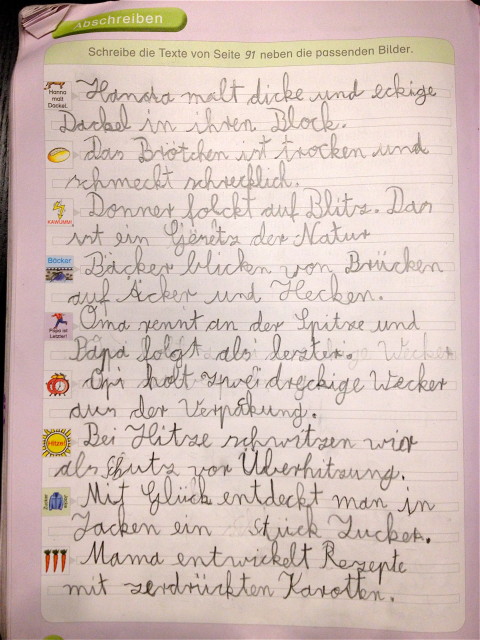 Abschreiben
Schreibe die Texte von Seite 91 neben die passenden Bilder.
Hanna malt Dackel.
Hanna malt dicke und eckige
Dackel in ihren Block.
Das Brötchen ist trocken und
schmeckt schrecklich.
KAWUMM!
Donner folckt auf Blitz. Das
ist ein Gesetz der Natur
Böcker
Bäcker blicken von Brücken
auf Äcker und Hecken.
Papa ist Letzter!
Oma rennt an der Spitze und
Papa folgt als letzter.
Opi holt zwei dreckige Wecker
aus der Verpakung.
Hitze!
Bei Hitze schwitzen wir
als Shutz vor Überhitzung.
Mit Glück entdeckt man in
Jacken ein stück Zucker.
Mama entwickelt Rezepte
mit zerdrückten Karotten.